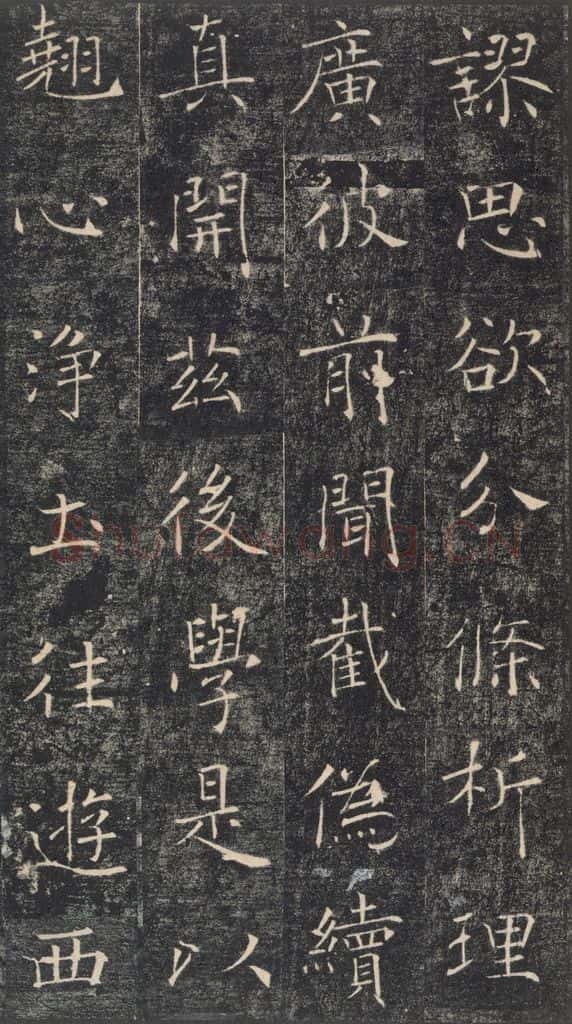 謬思欲分條析理
廣彼前聞截偽續
真開茲後學是以
翹心淨土往遊西
Shufawang.CN